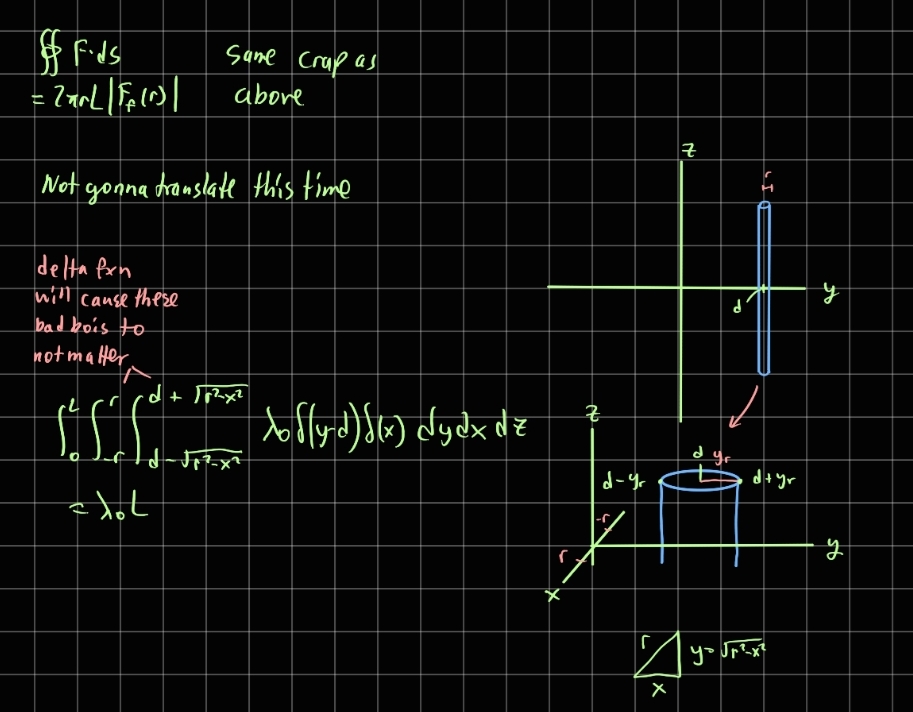 ∯ F·ds
= 2πrL|F_r(r)|
Same crap as
above
Not gonna translate this time
delta fxn
will cause these
bad bois to
not matter
∫_0^L ∫_{-r}^r ∫_{d-√(r²-x²)}^{d+√(r²-x²)} λ₀δ(y-d)δ(x) dydxdz
= λ₀L
z
r
y
d
z
d
y_r
d-y_r
d+y_r
-r
r
y
x
r
y=√(r²-x²)
x